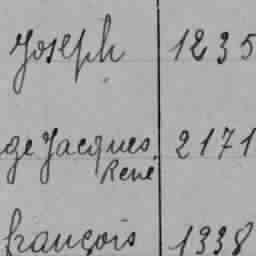 Joseph 1235
ge Jacques 2171
René
françois 1338